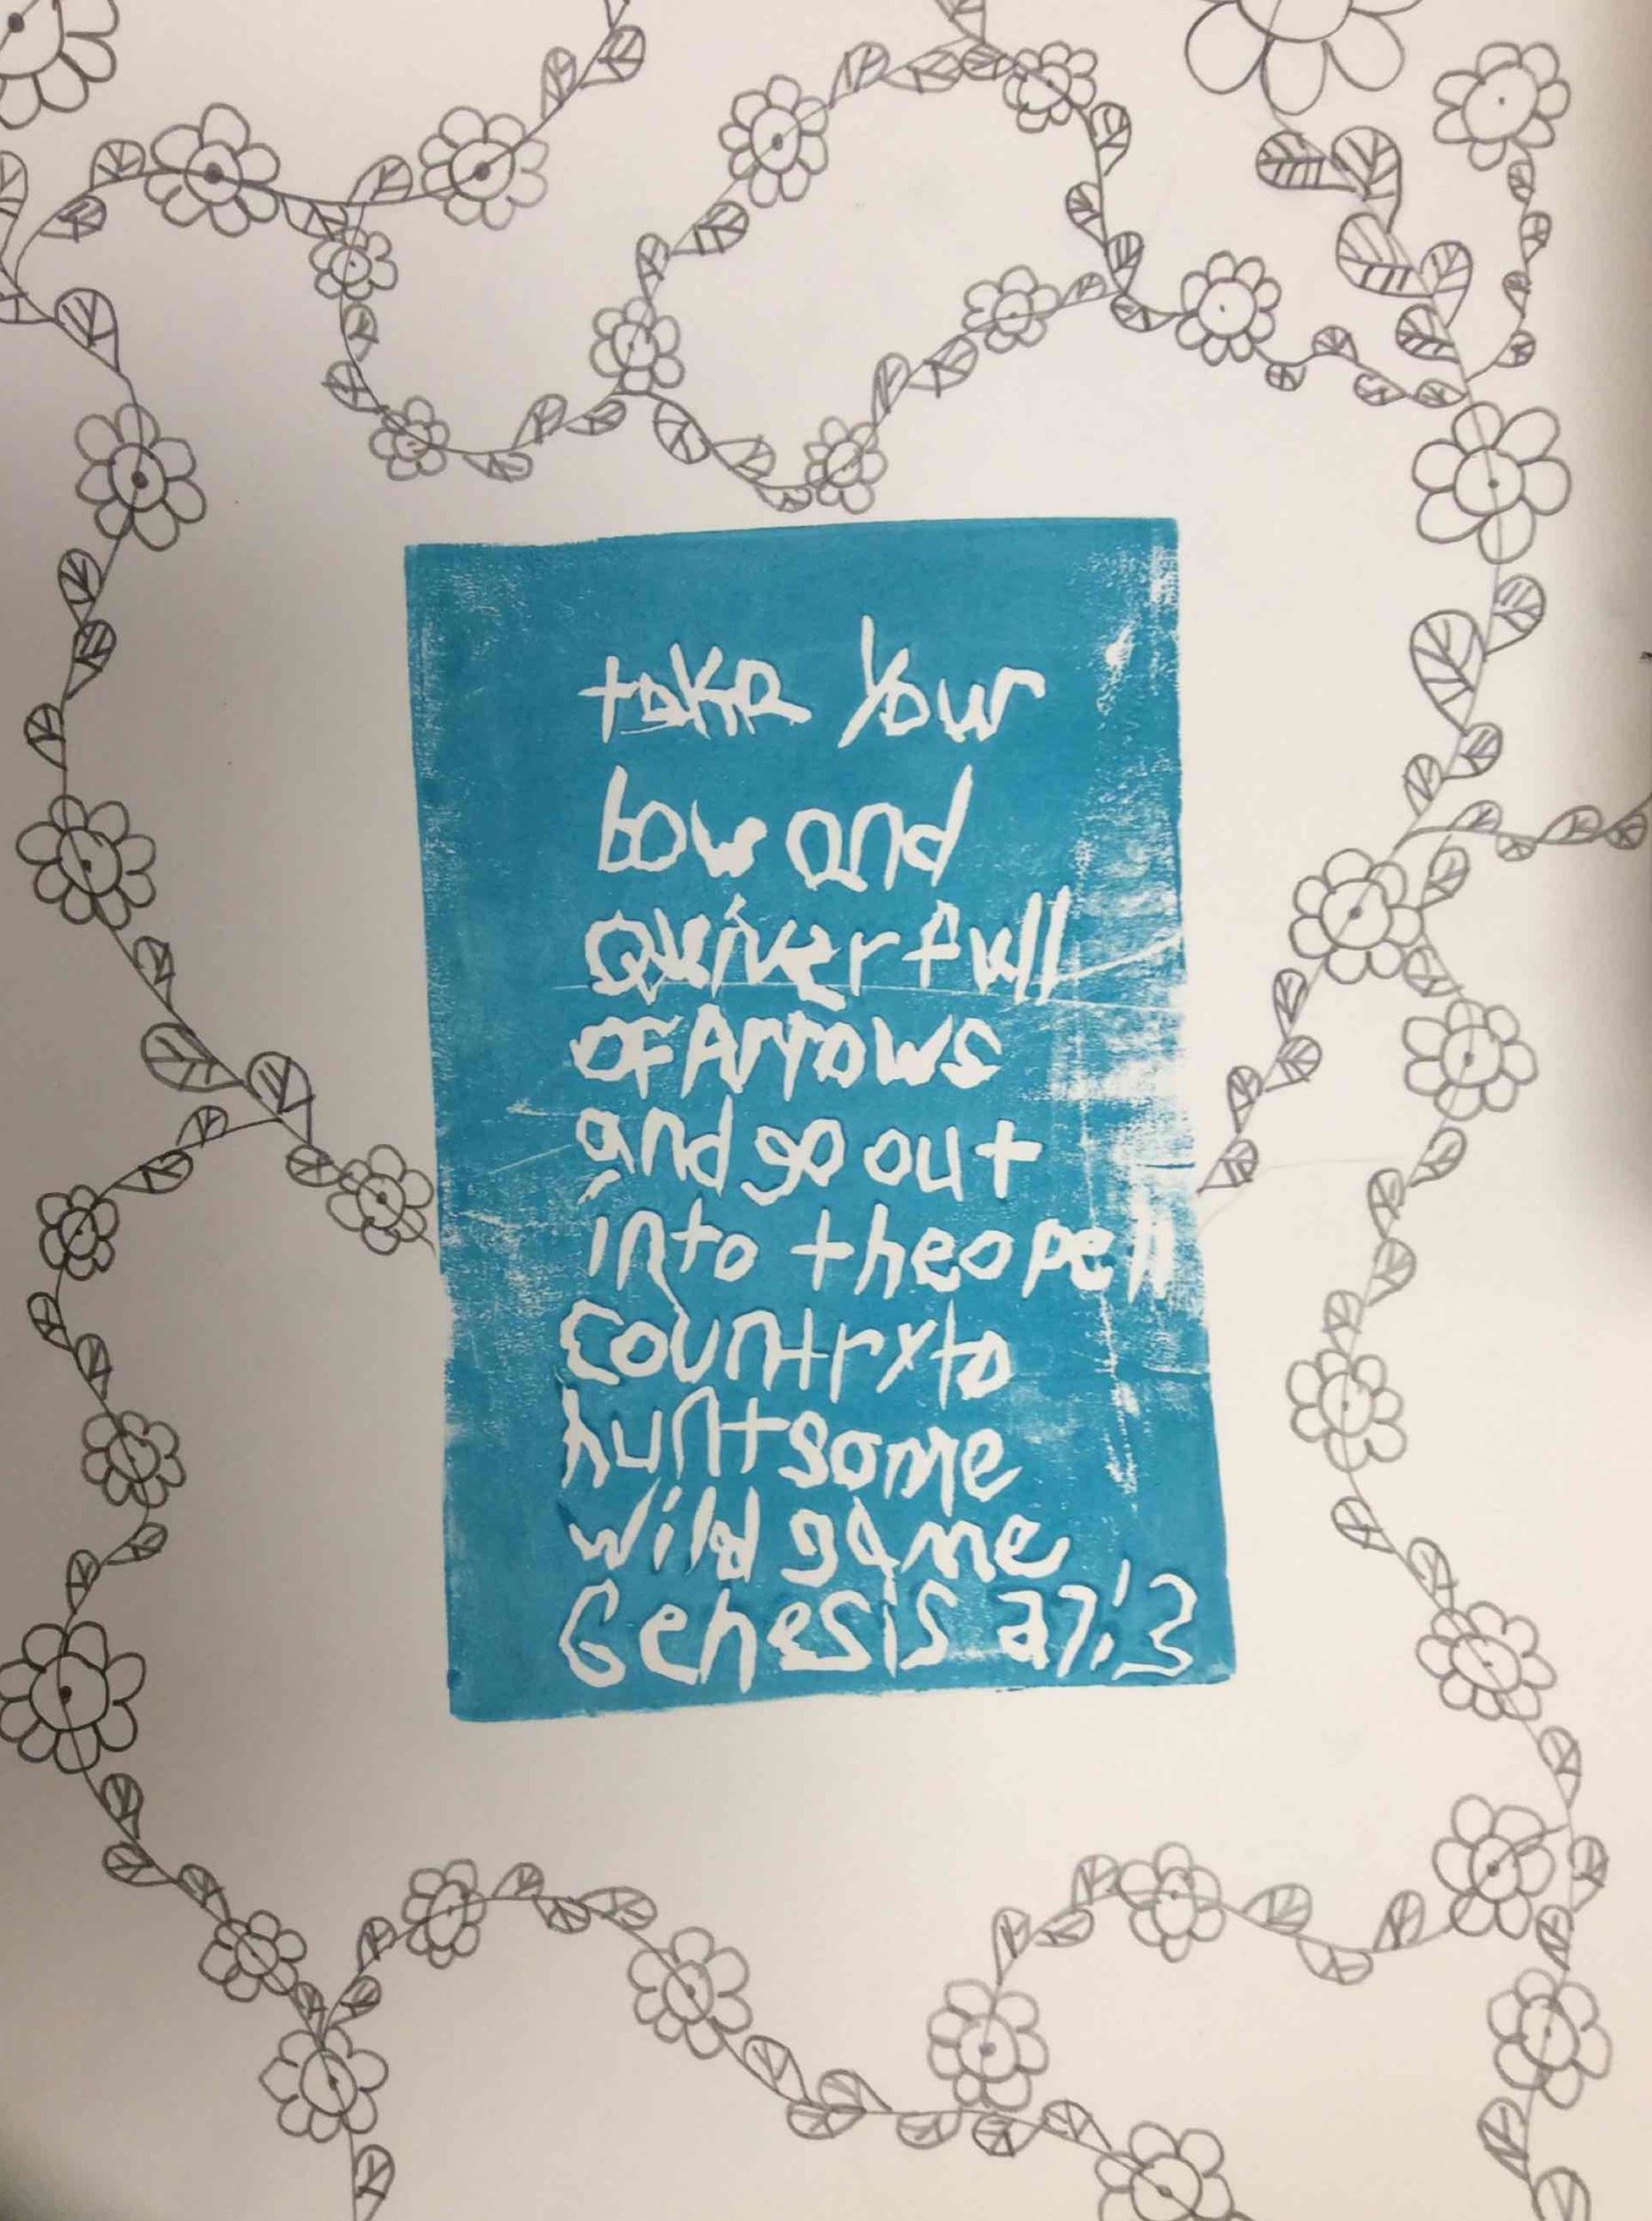 take Your
bow and
Quiver full
OF Arrows
and go out
into the open
Country to
hunt some
wild game
Genesis 27:3